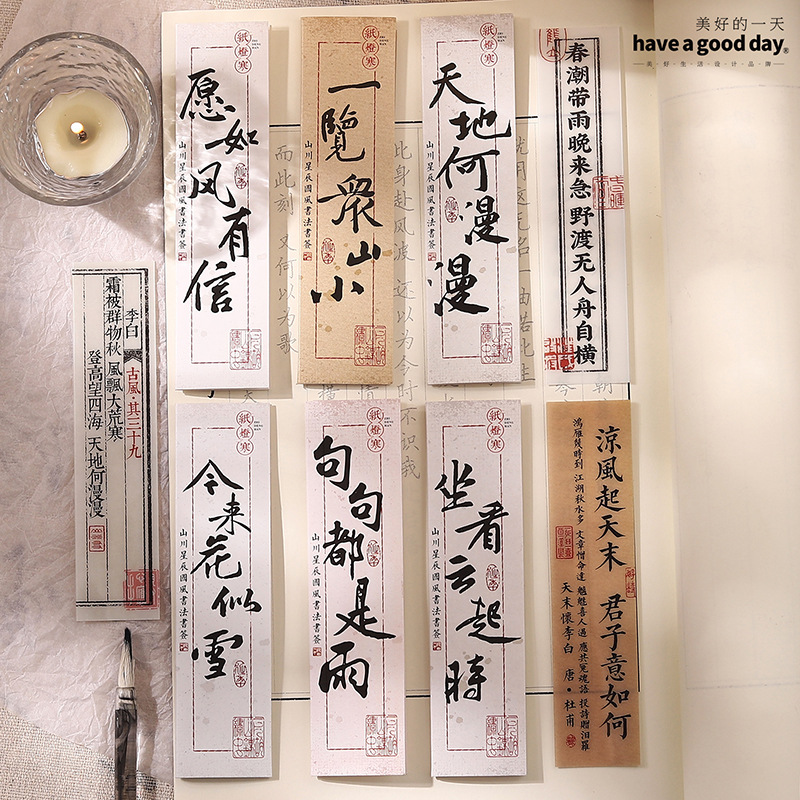 美好的一天
have a good day®
美好生活设计品牌
紙燈寒
愿如风有信
山川星辰國風書法書簽
紙燈寒
一覽眾山小
山川星辰國風書法書簽
紙燈寒
天地何漫漫
山川星辰國風書法書簽
春潮带雨晚来急 野渡无人舟自横
李白
古風·其三十九
登高望四海 天地何漫漫
霜被群物秋 風飄大荒寒
紙燈寒
今来花似雪
山川星辰國風書法書簽
紙燈寒
句句都是雨
山川星辰國風書法書簽
紙燈寒
坐看云起時
山川星辰國風書法書簽
涼風起天末 君子意如何
鴻雁幾時到 江湖秋水多 文章憎命達 魑魅喜人過 應共冤魂語 投詩贈汨羅
天末懷李白 唐·杜甫
而此刻 又何以為歌
此身赴风波 还以为今时不识哉